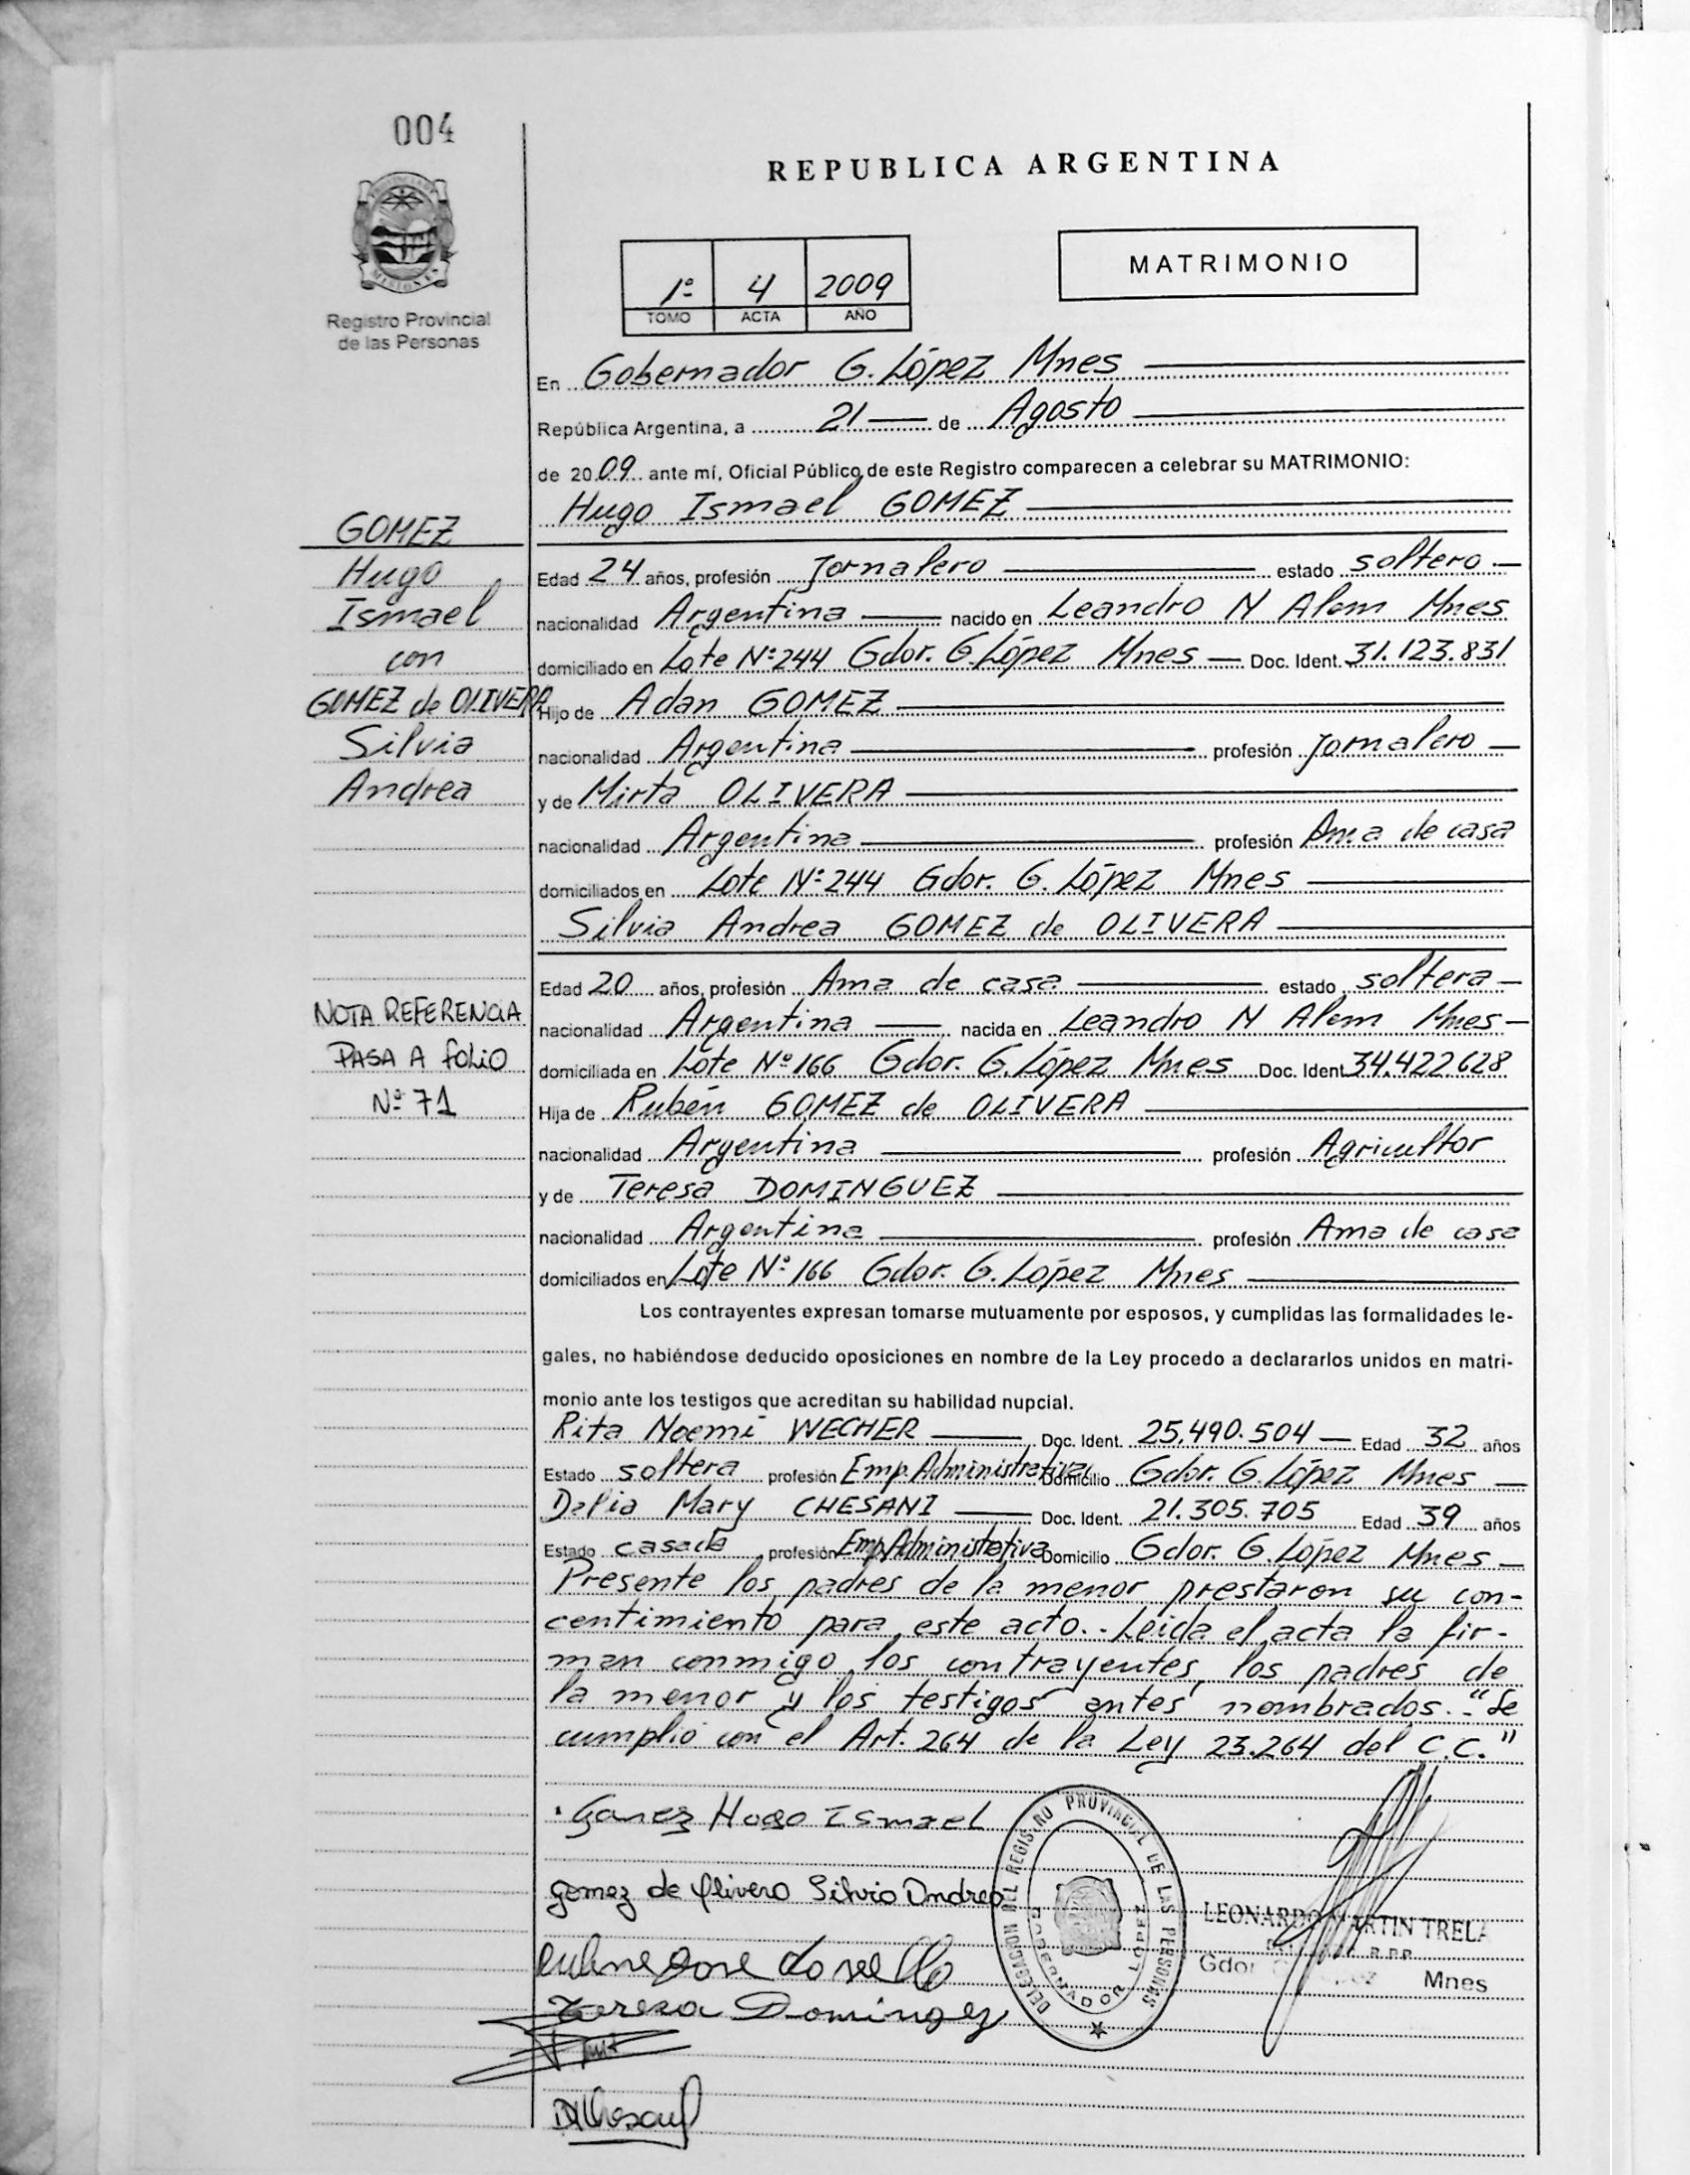 004
REPUBLICA ARGENTINA
MATRIMONIO
1º 4 2009
TOMO ACTA AÑO
Registro Provincial
de las Personas
En Gobernador G. López Mnes
República Argentina, a 21 de Agosto
de 2009 ante mí, Oficial Público de este Registro comparecen a celebrar su MATRIMONIO:
Hugo Ismael GOMEZ
GOMEZ
Hugo
Ismael
con
GOMEZ de OLIVERA
Silvia
Andrea
Edad 24 años, profesión Jornalero estado soltero
nacionalidad Argentina nacido en Leandro N Alem Mnes
domiciliado en Lote Nº 244 Gdor. G. López Mnes Doc. Ident. 31.123.831
Hijo de Adan GOMEZ
nacionalidad Argentina profesión Jornalero
y de Mirta OLIVERA
nacionalidad Argentina profesión Ama de casa
domiciliados en Lote Nº 244 Gdor. G. López Mnes
Silvia Andrea GOMEZ de OLIVERA
NOTA REFERENCIA
PASA A FOLIO
Nº 71
Edad 20 años, profesión Ama de casa estado soltera
nacionalidad Argentina nacida en Leandro N Alem Mnes
domiciliada en Lote Nº 166 Gdor. G. López Mnes Doc. Ident 34.422.628
Hija de Rubén GOMEZ de OLIVERA
nacionalidad Argentina profesión Agricultor
y de Teresa DOMINGUEZ
nacionalidad Argentina profesión Ama de casa
domiciliados en Lote Nº 166 Gdor. G. López Mnes
Los contrayentes expresan tomarse mutuamente por esposos, y cumplidas las formalidades le-
gales, no habiéndose deducido oposiciones en nombre de la Ley procedo a declararlos unidos en matri-
monio ante los testigos que acreditan su habilidad nupcial.
Rita Noemi WECHER Doc. Ident. 25.490.504 Edad 32 años
Estado soltera profesión Emp. Administrativa Domicilio Gdor. G. López Mnes
Delia Mary CHESANI Doc. Ident. 21.305.705 Edad 39 años
Estado casada profesión Emp. Administrativa Domicilio Gdor. G. López Mnes
Presente los padres de la menor prestaron su con-
centimiento para este acto.- Leida el acta la fir-
man conmigo los contrayentes, los padres de
la menor y los testigos antes nombrados.- "Se
cumplio con el Art. 264 de la Ley 23.264 del C.C."
Hugo Ismael
gomez de Olivera Silvia Andrea
Teresa Dominguez
DELEGACION DEL REGISTRO PROVINCIAL DE LAS PERSONAS
GOBERNADOR LOPEZ
LEONARDO MARTIN TRELA
R.P.P.
Gdor Mnes